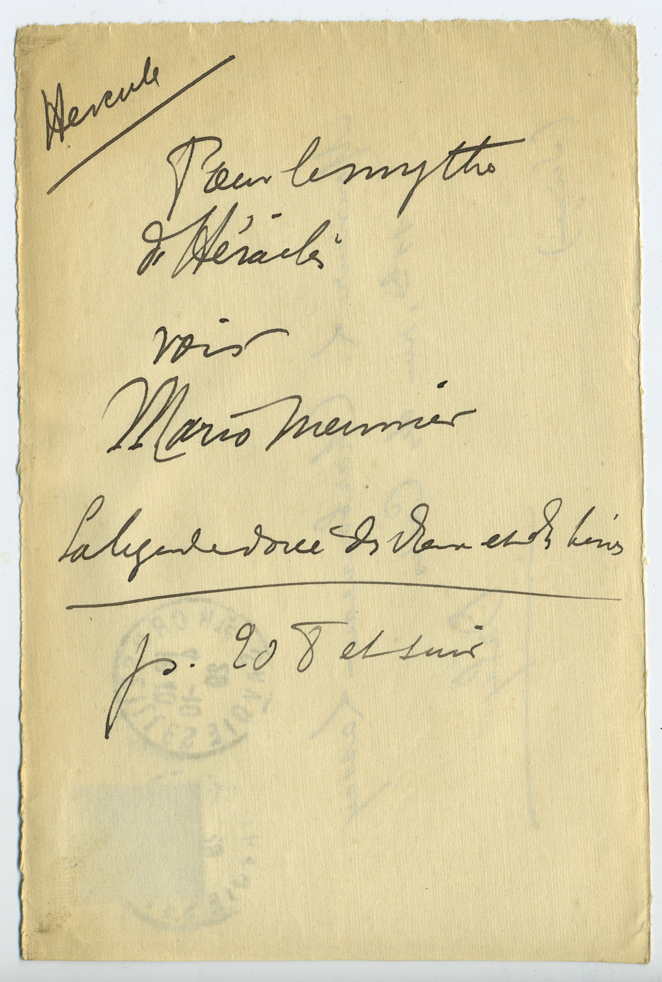 Hercule
Pour le mythe
d'Héraclès
voir
Mario Meunier
La légende dorée des dieux et des héros
p. 208 et suiv